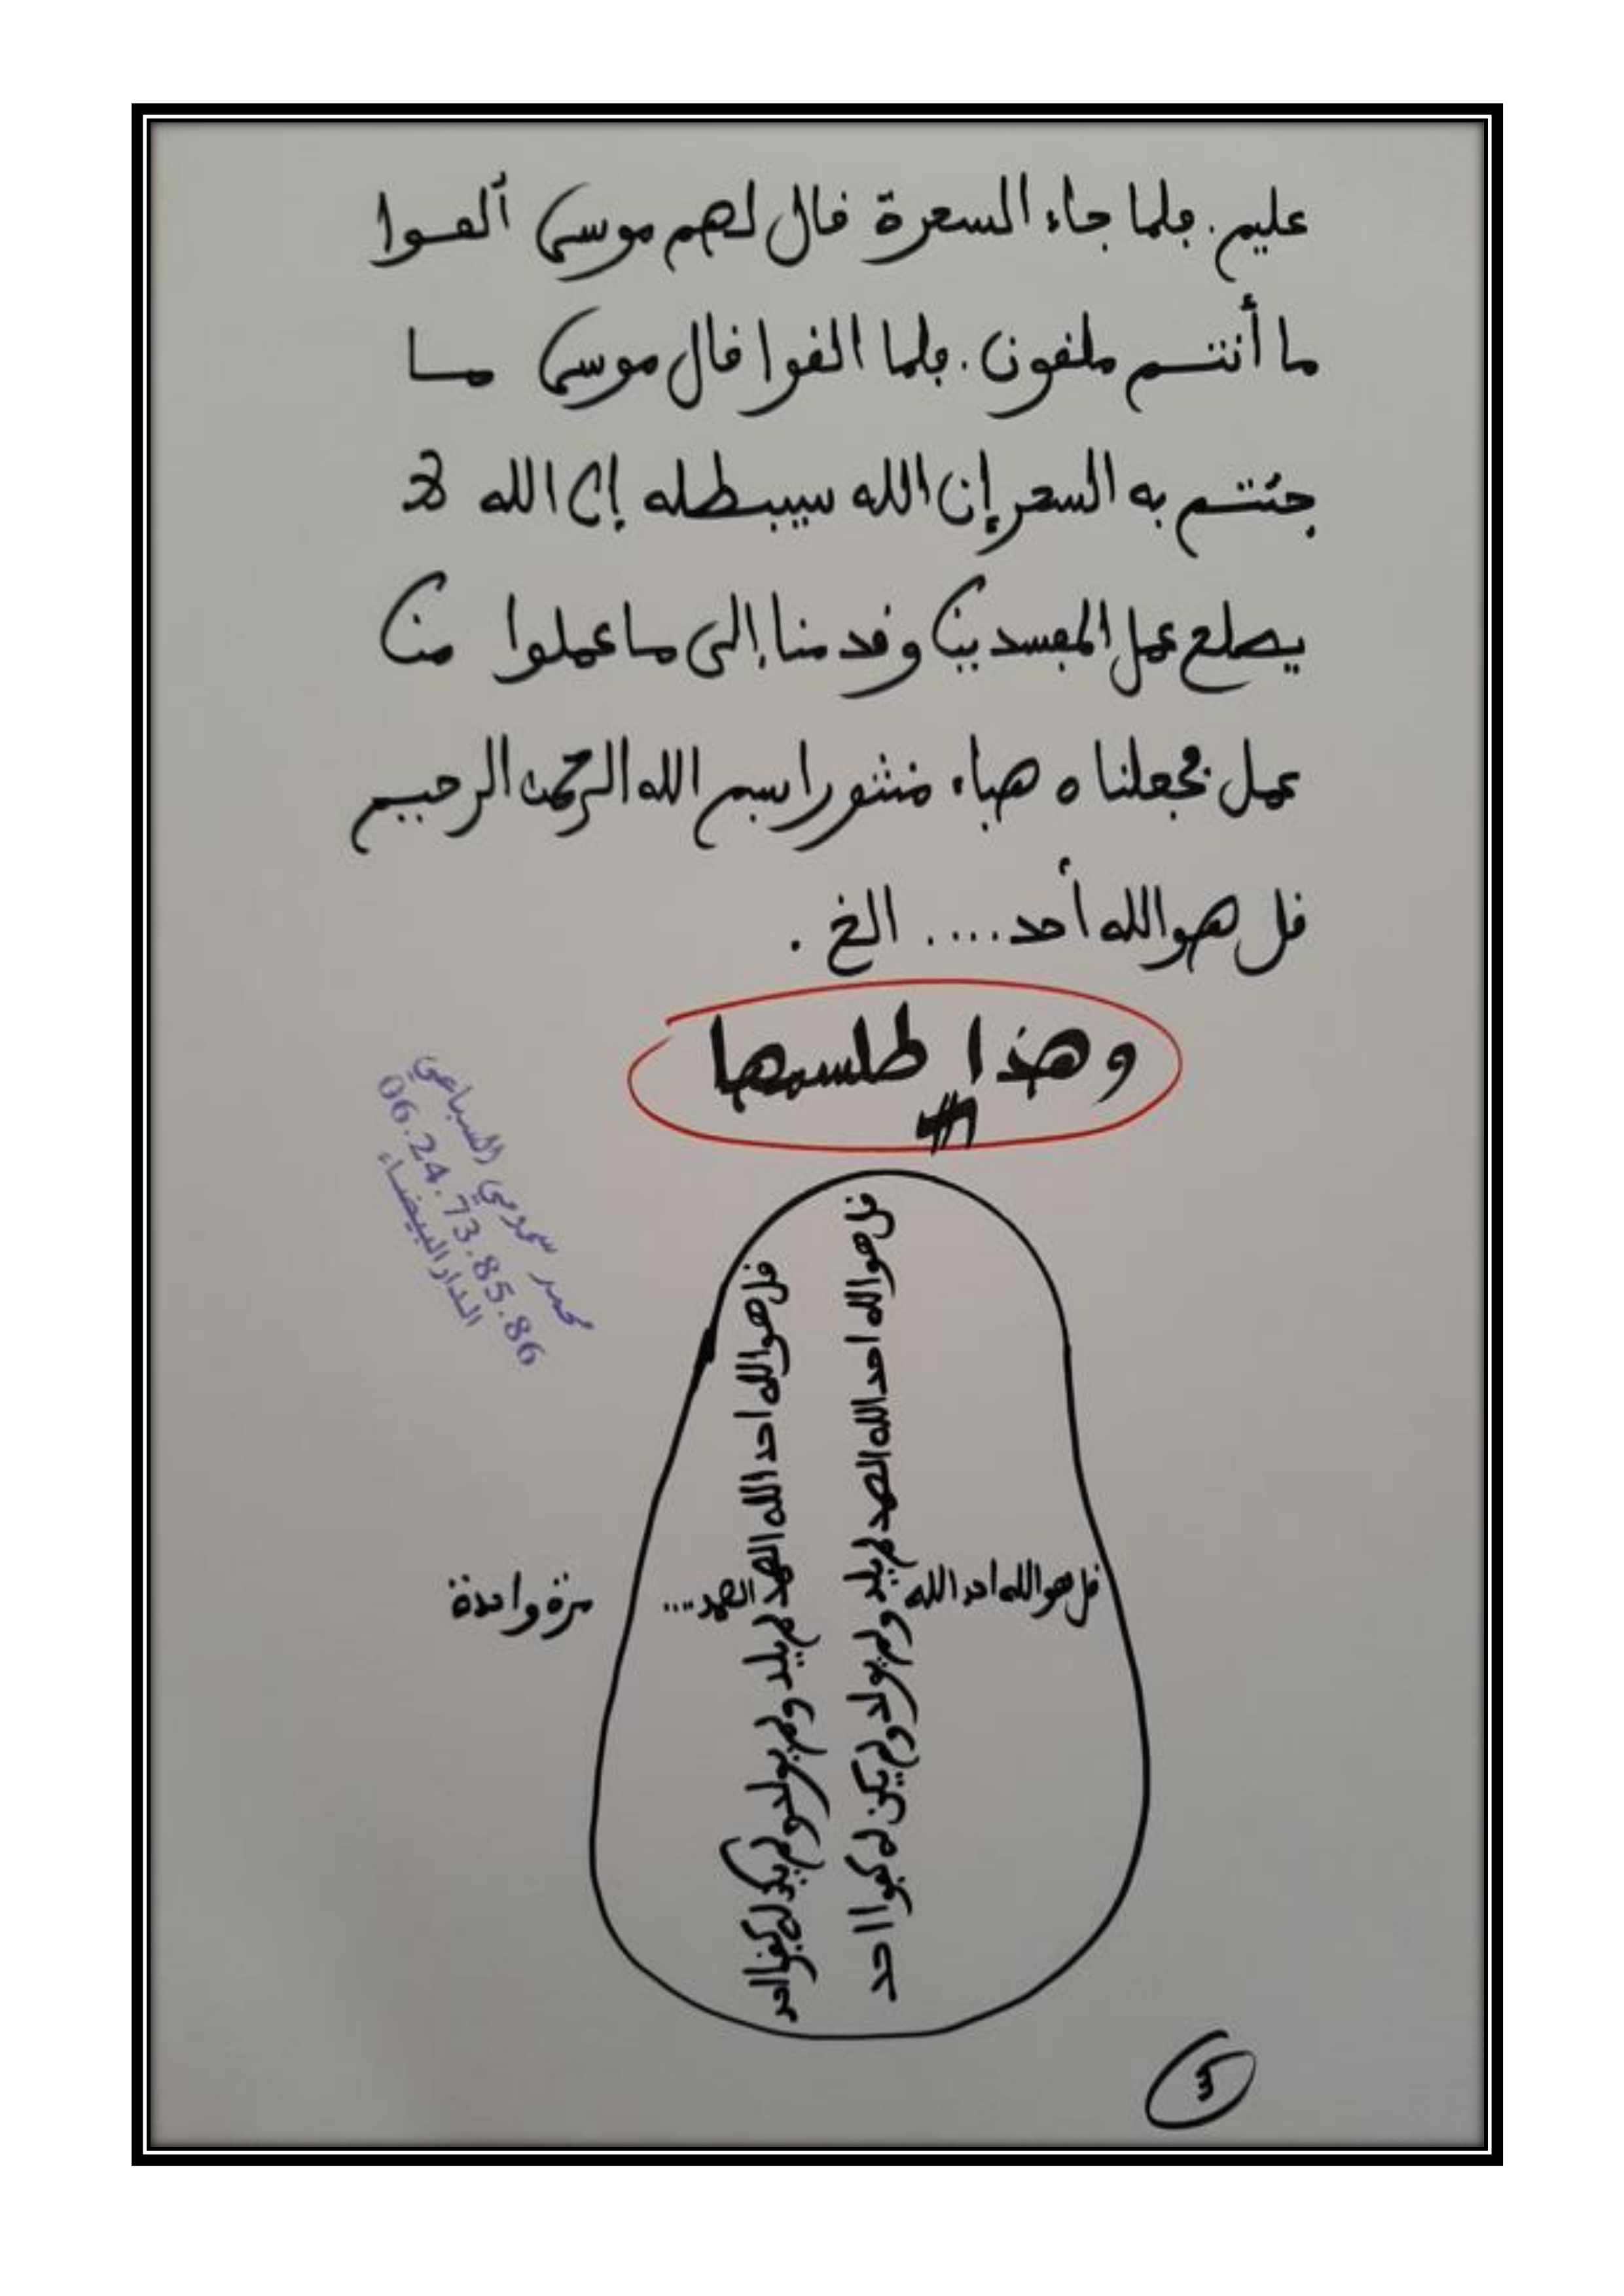 عليم. فلما جاء السحرة قال لهم موسى ألقوا
ما أنتم ملقون. فلما القوا قال موسى ما
جئتم به السحر إن الله سيبطله إن الله لا
يصلح عمل المفسدين وقدمنا إلى ما عملوا من
عمل فجعلناه هباء منثورا بسم الله الرحمن الرحيم
قل هو الله أحد.... الخ .
وهذا طلسمها
محمد سمومي السباعي
06.24.73.85.86
الدار البيضاء
قل هو الله احد الله الصمد لم يلد ولم يولد ولم يكن له كفوا احد
قل هو الله احد الله الصمد لم يلد ولم يولد ولم يكن له كفوا احد
قل هو الله احد الله الصمد....
مرة واحدة